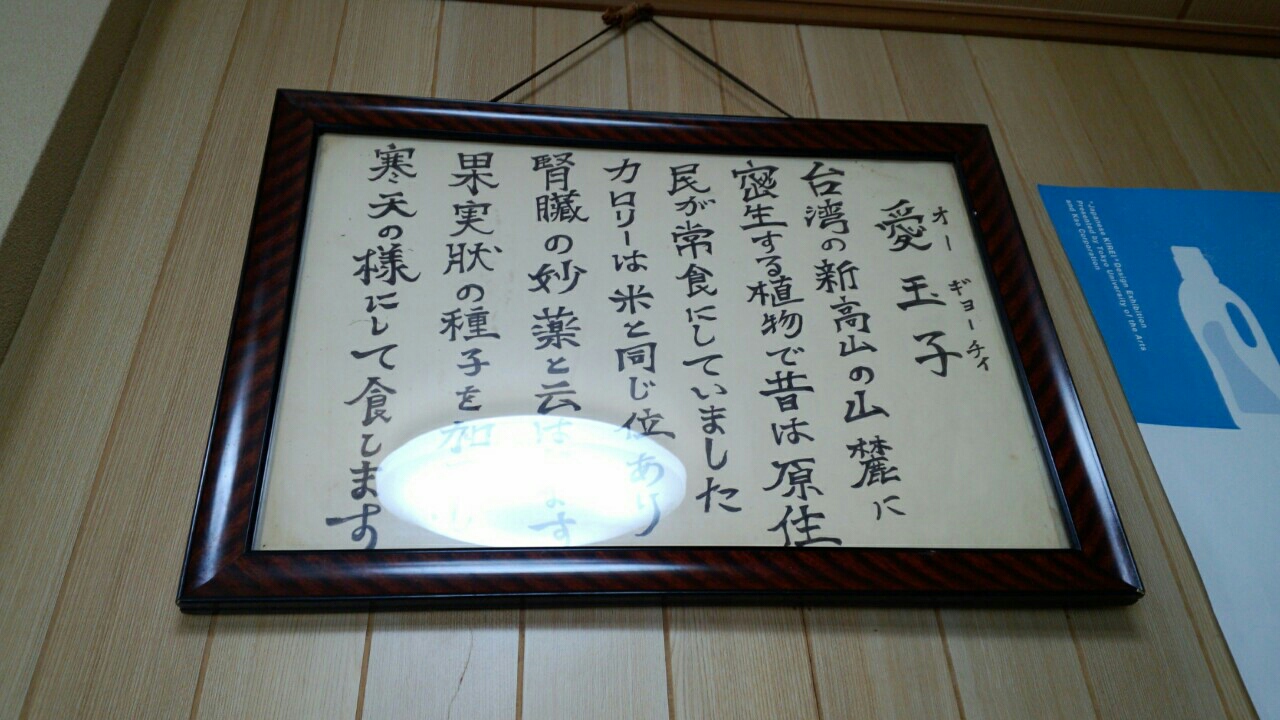 愛玉子
オーギョーチィ
台湾の新高山の山麓に
密生する植物で昔は原住
民が常食にしていました
カロリーは米と同じ位あり
腎臓の妙薬と云はます
果実状の種子を加
寒天の様にして食します
"Japanese KIREI" Design Exhibition
Presented by Tokyo University of the Arts
and Kao Corporation